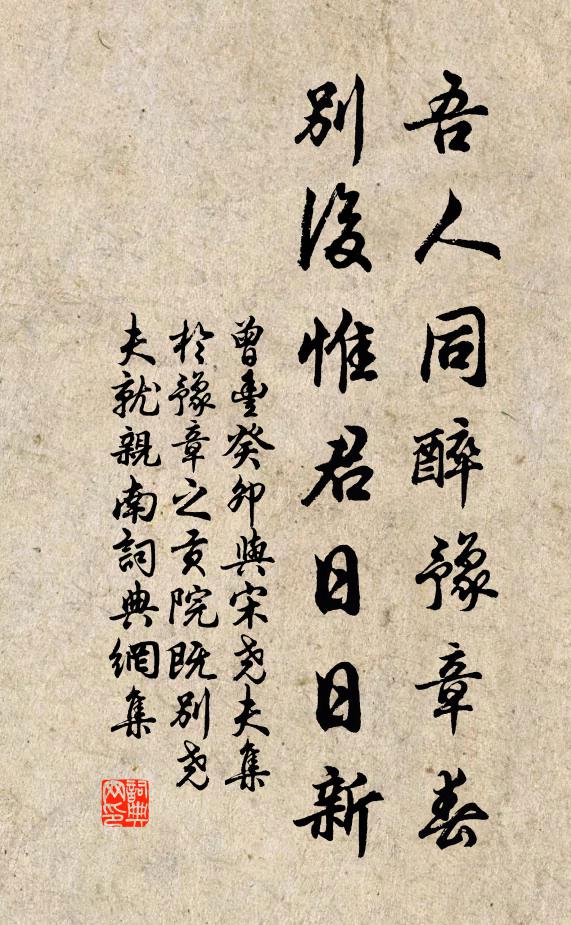 吾人同醉豫章春
別後惟君日日新
曾豐癸卯與宋堯夫集
於豫章之貢院既別堯
夫就親南詞典網集
詞典
网印